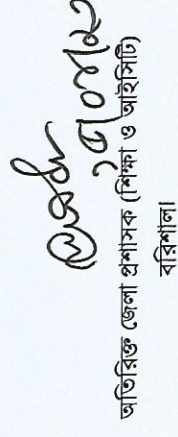 অতিরিক্ত জেলা প্রশাসক (শিক্ষা ও আইসিটি)
বরিশাল।